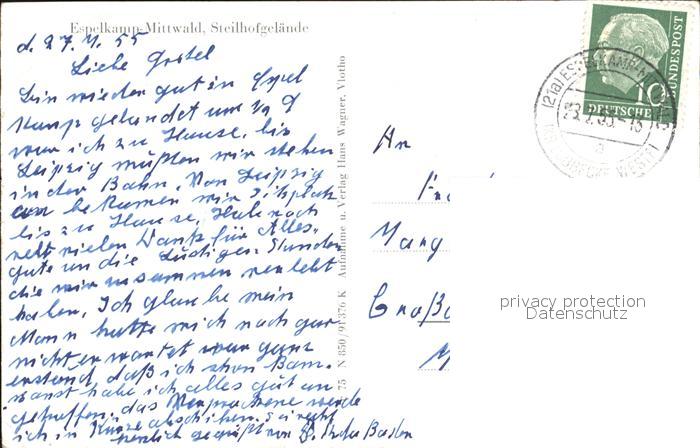 Espelkamp-Mittwald, Steilhofgelände
d. 27.7.55
Liebe Gretel
Bin wieder gut in Espel
kamp gelandet um ½ 9
war ich zu Hause. bis
Leipzig mußten wir stehen
in der Bahn. Von Leipzig
bekamen wir Sitzplatz
bis zu Hause. Hab noch
recht vielen Dank für Alles
gute un die Stunden
die wir zusammen verlebt
haben. Ich glaube mein
Mann hatte mich noch gar
nicht erwartet war ganz
erstaunt, daß ich schon kam.
sonst habe ich alles gut an
getroffen. das Versprochene werde
ich in Kürze abschicken. Sei recht
herzlich gegrüßt von
75 N 850/91376 K Aufnahme u. Verlag Hans Wagner, Vlotho
An
Marg
Großs
M
DEUTSCHE BUNDESPOST
10
(21a) ESPELKAMP-MITTWALD
a
privacy protection
Datenschutz